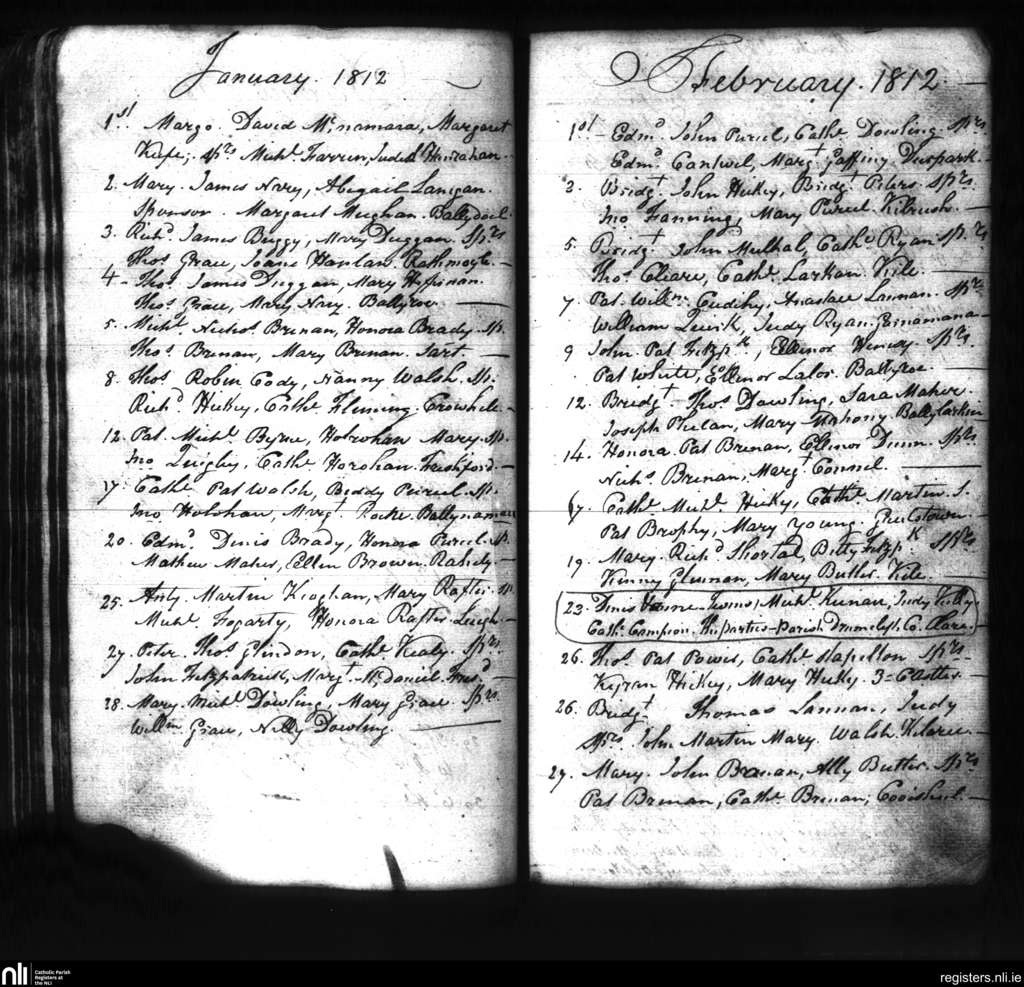 January. 1812
1st Margo. David McNamara, Margaret
Kiefe; sprs Michl Farren, Judith Hanrahan.
2. Mary. James Nary, Abigail Langan.
Sponsor. Margaret Meighan. Ballydoel.
3. Richd James Buggy, Mary Duggan. Sprs
Thos Grace, Joane Hanlan. Rathmoyle.
4 Thos. James Duggan, Mary
Thos Grace, Mary Nary. Ballyroe.
5. Michl Nichos Brenan, Honora Brady. Sp.
Thos Brenan, Mary Brenan. Tart.
8. Thos Robin Cody, Nanny Walsh. Sp.
Richd Hickey, Cathe Fleming. Crowhill.
12. Pat. Michl Byrne, Holohan Mary. Sp.
Jno Quigley, Cathe Horohan. Freshford.
17. Cathe Pat Walsh, Biddy Purcel. Sp.
Jno Holohan, Margt Roche. Ballynaman
20. Edmd Dinis Brady, Honora Purcel. Sp.
Mathew Maher, Ellen Brown.
25. Anty. Martin Keoghan, Mary Rafter. Sp.
Michl Fogarty, Honora Rafter. Leugh.
27. Peter. Thos Glindon, Cathe Kealy. Sprs
John Fitzpatrick, Margt McDaniel.
28. Mary. Michl Dowling, Mary Grace. Sprs
Willm Grace, Nelly Dowling.
February. 1812.
1st Edmd John Purcel, Cathe Dowling. Sprs
Edmd Cantwel, Margt Gaffiny. Deerpark.
3. Bridgt John Hickey, Bridgt Peters. Sprs
Jno Fanning, Mary Purcel. Kilrush.
5. Bridgt John Mulhal, Cathe Ryan. Sprs
Thos Cleare, Cathe Larkan. Kile.
7. Pat. Willm Cudihy, Anastace Lannan. Sprs
William Lewik, Judy Ryan.
9 John. Pat Fitzpk, Ellenor Henesy. Sprs
Pat White, Ellenor Lalor. Ballyroe.
12. Bridgt Thos Dowling, Sara Maher
Joseph Phelan, Mary Mahony. Ballylarkin
14. Honora. Pat Brenan, Ellenor Dunn. Sprs
Nichs Brenan, Margt Connel.
17. Cathe Michl Hicky, Cathe Martin. S.
Pat Brophy, Mary Young.
19. Mary. Richd Shortal, Bitty Fitzpk Sprs
Kinny Glennan, Mary Butler. Kile.
23. Dinis Twins, Michl Kunan, Judy Kelly
Cathe Campion. The parties Parish Drumcleft, Co. Clare.
26. Thos Pat Power, Cathe Hapelton Sprs
Kyran Hickey, Mary Hicky. 3 Castles.
26. Bridgt Thomas Lannan, Judy
Sprs John Martin Mary Walsh. Kilaree.
27. Mary. John Brenan, Ally Butler. Sprs
Pat Brenan, Cathe Brenan; Cooishiel.
nli
Catholic Parish
Registers at
the NLI
registers.nli.ie